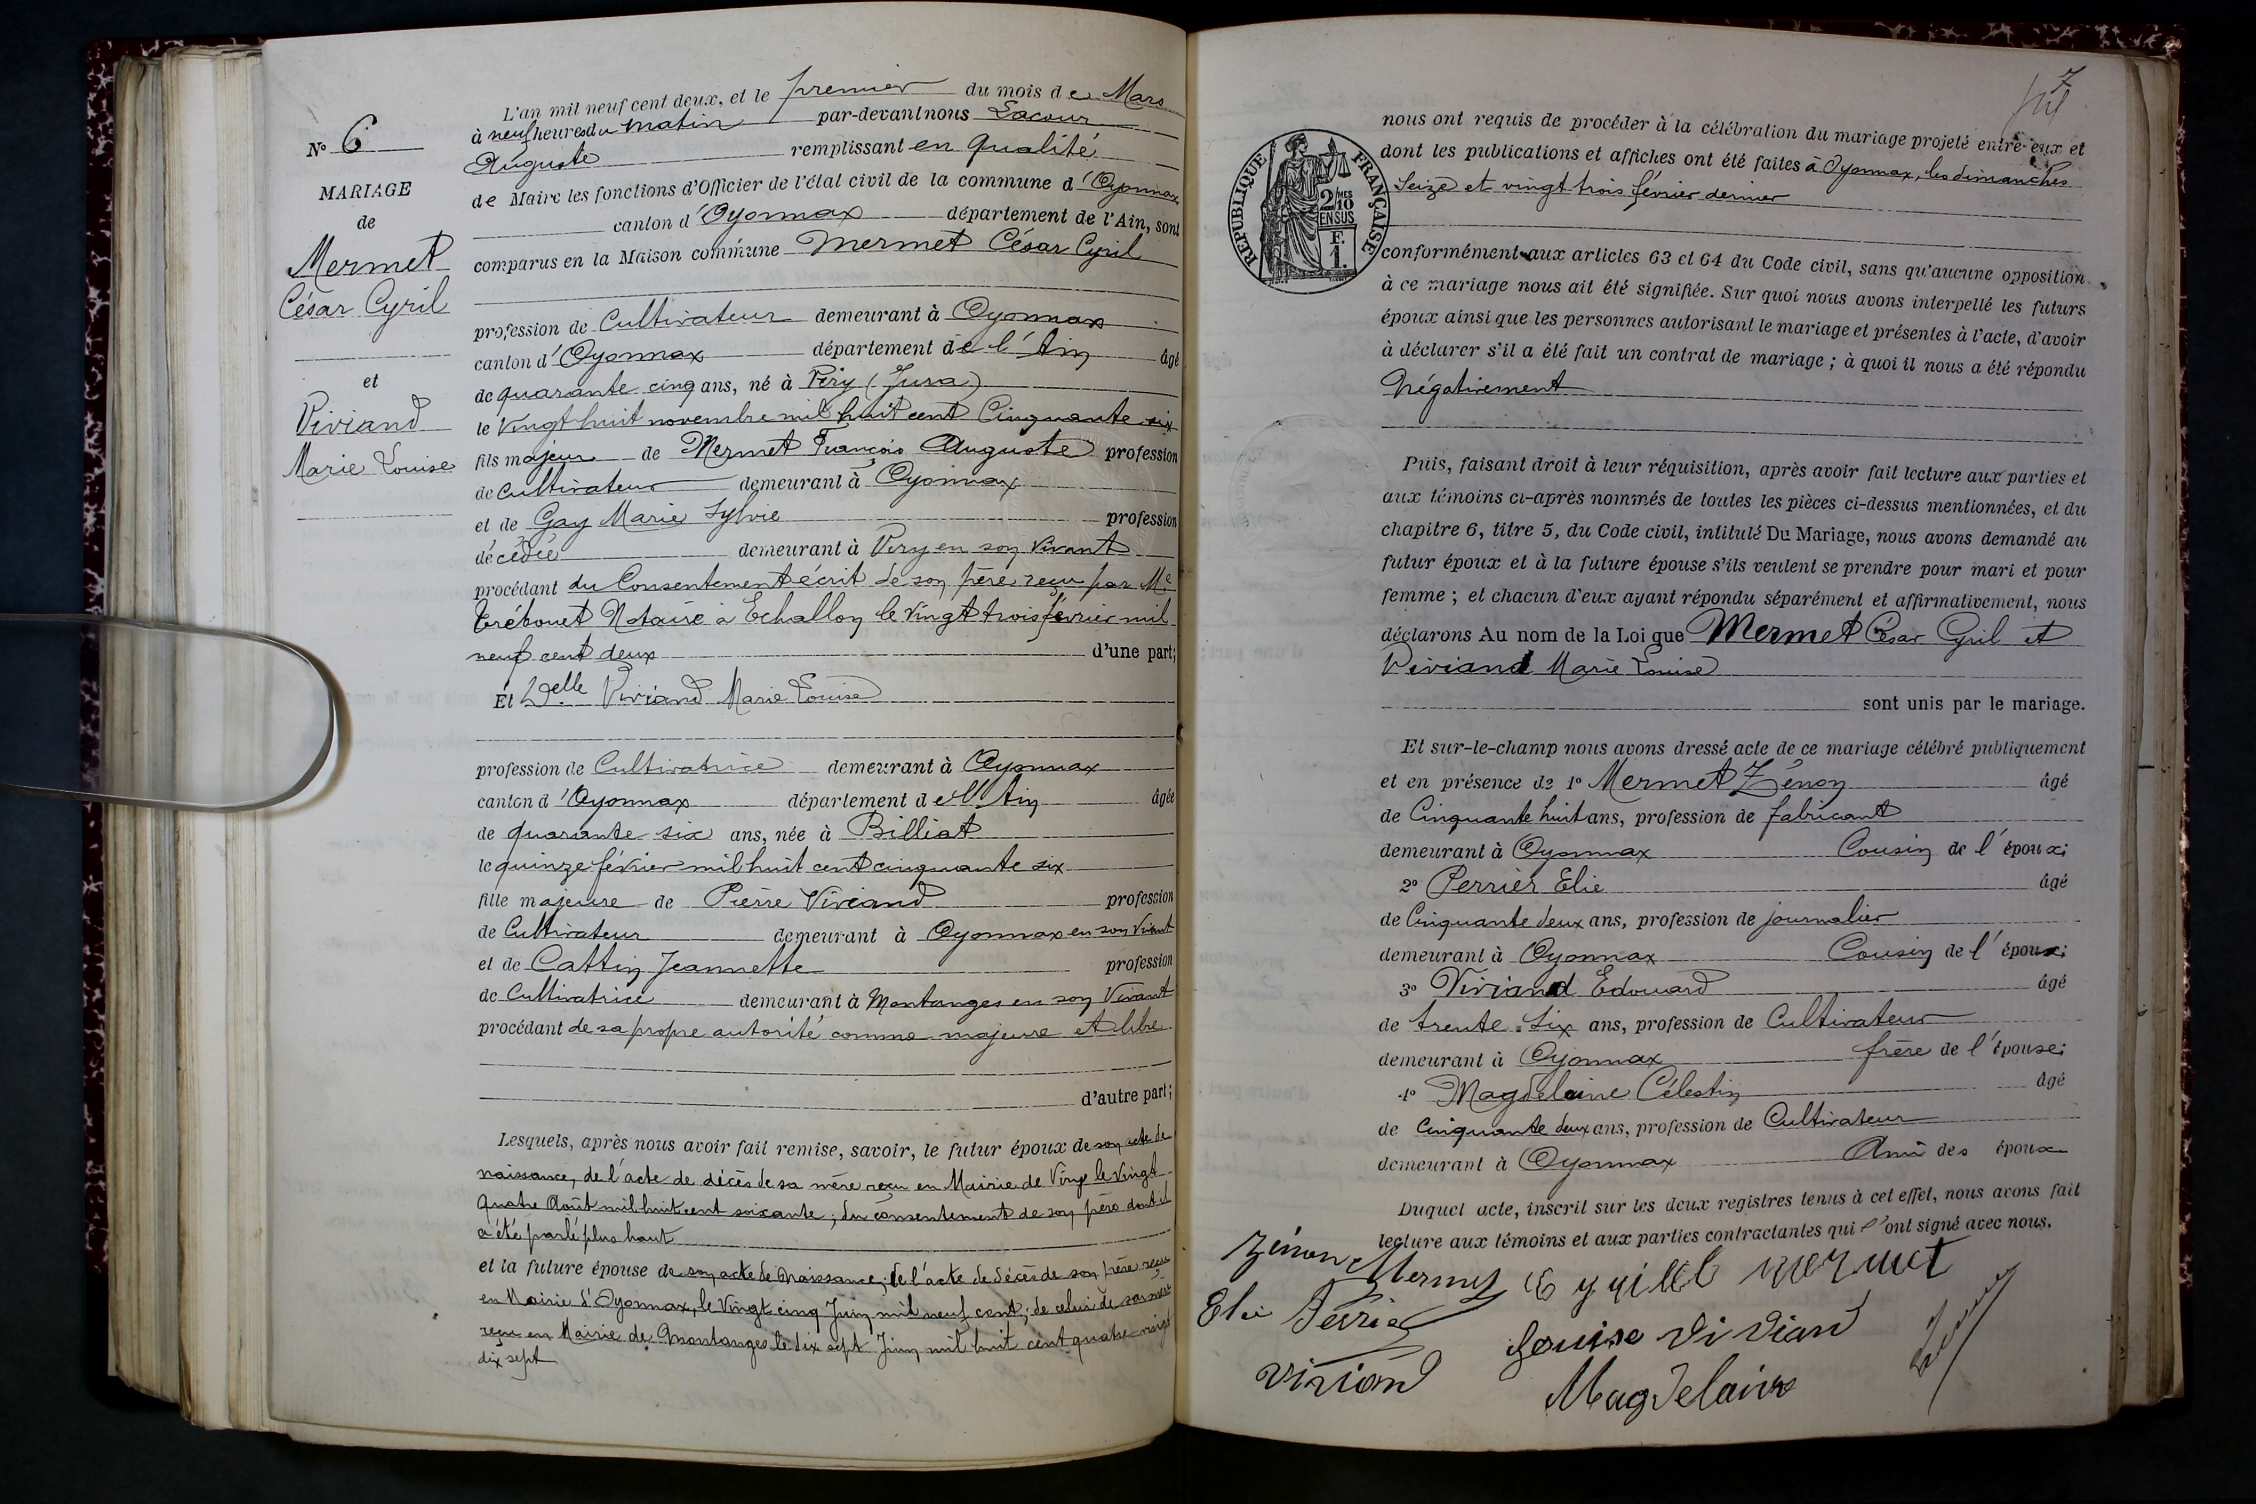 L'an mil neuf cent deux, et le premier du mois de Mars
à neuf heures du matin par-devant nous Lacour
Auguste remplissant en qualité
de Maire les fonctions d'Officier de l'état civil de la commune d'Oyonnax
canton d'Oyonnax département de l'Ain, sont
comparus en la Maison commune Mermet César Cyril
profession de Cultivateur demeurant à Oyonnax
canton d'Oyonnax département de l'Ain âgé
de quarante cinq ans, né à Viry (Jura)
le Vingt huit novembre mil huit cent Cinquante six
fils majeur de Mermet François Auguste profession
de cultivateur demeurant à Oyonnax
et de Gay Marie Sylvie profession
décédée demeurant à Viry en son vivant
procédant du Consentement écrit de son père reçu par Me
Trébouet Notaire à Echallon le vingt trois février mil
neuf cent deux d'une part;
Et Delle Viviand Marie Louise
profession de Cultivatrice demeurant à Oyonnax
canton d'Oyonnax département de l'Ain âgée
de quarante six ans, née à Billiat
le quinze février mil huit cent cinquante six
fille majeure de Pierre Viviand profession
de Cultivateur demeurant à Oyonnax en son vivant
et de Cattin Jeannette profession
de Cultivatrice demeurant à Montanges en son Vivant
procédant de sa propre autorité comme majeure et libre
d'autre part;
Lesquels, après nous avoir fait remise, savoir, le futur époux de son acte de
naissance, de l'acte de décès de sa mère reçu en Mairie de Viry le vingt
quatre Août mil huit cent soixante; du consentement de son père dont il
a été parlé plus haut
et la future épouse de son acte de Naissance; de l'acte de décès de son père reçu
en Mairie d'Oyonnax, le vingt cinq Juin mil neuf cent; de celui de sa mère
reçu en Mairie de Montanges le dix sept Juin mil huit cent quatre vingt
dix sept
N° 6
MARIAGE
de
Mermet
César Cyril
et
Viviand
Marie Louise
7
nous ont requis de procéder à la célébration du mariage projeté entre eux et
dont les publications et affiches ont été faites à Oyonnax, les dimanches
Seize et vingt trois février dernier
conformément aux articles 63 et 64 du Code civil, sans qu'aucune opposition
à ce mariage nous ait été signifiée. Sur quoi nous avons interpellé les futurs
époux ainsi que les personnes autorisant le mariage et présentes à l'acte, d'avoir
à déclarer s'il a été fait un contrat de mariage; à quoi il nous a été répondu
Négativement
Puis, faisant droit à leur réquisition, après avoir fait lecture aux parties et
aux témoins ci-après nommés de toutes les pièces ci-dessus mentionnées, et du
chapitre 6, titre 5, du Code civil, intitulé Du Mariage, nous avons demandé au
futur époux et à la future épouse s'ils veulent se prendre pour mari et pour
femme; et chacun d'eux ayant répondu séparément et affirmativement, nous
déclarons Au nom de la Loi que Mermet César Cyril et
Viviand Marie Louise
sont unis par le mariage.
Et sur-le-champ nous avons dressé acte de ce mariage célébré publiquement
et en présence de 1° Mermet Zénon âgé
de Cinquante huit ans, profession de fabricant
demeurant à Oyonnax Cousin de l'époux;
2° Perrier Elie âgé
de Cinquante deux ans, profession de journalier
demeurant à Oyonnax Cousin de l'époux;
3° Viviand Edouard âgé
de trente six ans, profession de Cultivateur
demeurant à Oyonnax frère de l'épouse;
4° Magdelaine Célestin âgé
de Cinquante deux ans, profession de Cultivateur
demeurant à Oyonnax Ami des époux
Duquel acte, inscrit sur les deux registres tenus à cet effet, nous avons fait
lecture aux témoins et aux parties contractantes qui l'ont signé avec nous.
REPUBLIQUE FRANÇAISE
2/10 MES
EN SUS
F.
1.
Zénon Mermet
mermet
Elie Perrier
Louise Viviand
viviand
Magdelaine